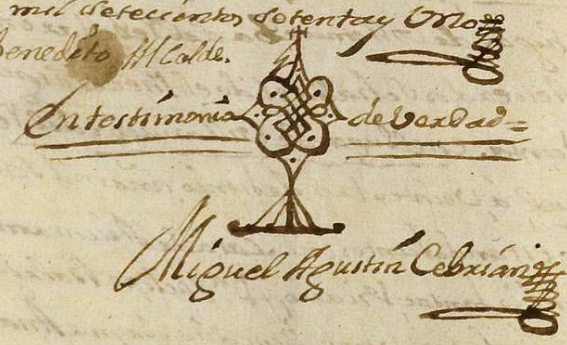 mil setecientos setenta y Uno=
Benedito Alcalde.
En testimonio de Verdad=
Miguel Agustín Cebrián